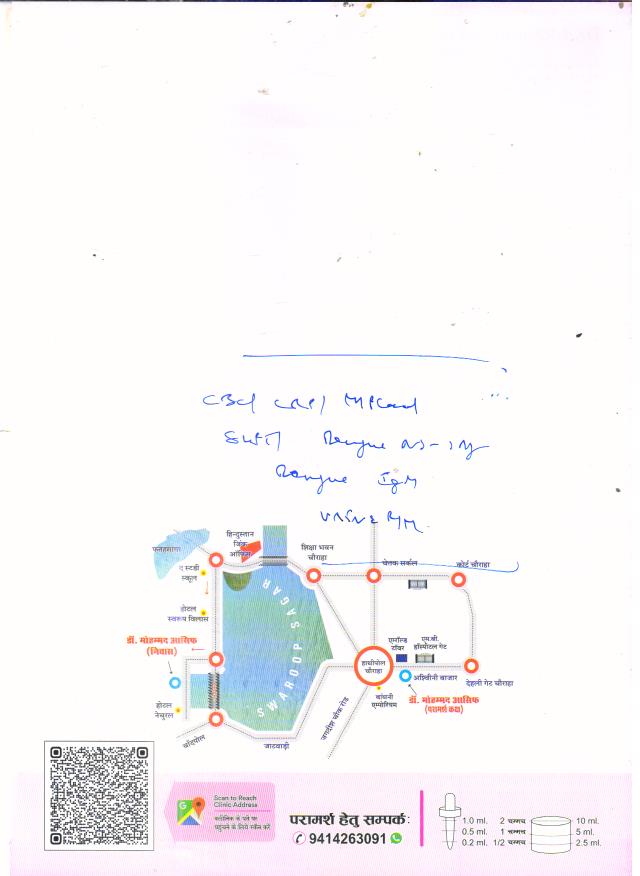 CBC/ CRP/ MPCard
SGPT Dengue NS-1Ag
Dengue IgM
URINE RM
फतहसागर
हिन्दुस्तान
जिंक
ऑफिस
शिक्षा भवन
चौराहा
चेतक सर्कल
कोर्ट चौराहा
द स्टडी
स्कूल
होटल
स्वरूप विलास
SWAROOP SAGAR
डॉ. मोहम्मद आसिफ
(निवास)
होटल
नेचुरल
चाँदपोल
जाटवाड़ी
जगदीश चौक रोड
हाथीपोल
चौराहा
एमरॉल्ड
टॉवर
एम.बी.
हॉस्पीटल गेट
अश्विनी बाजार
देहली गेट चौराहा
बांधनी
एम्पोरियम
डॉ. मोहम्मद आसिफ
(परामर्श कक्ष)
Scan to Reach
Clinic Address
क्लीनिक के पते पर
पहुंचने के लिये स्कैन करें
परामर्श हेतु सम्पर्क:
9414263091
1.0 ml. 2 चम्मच 10 ml.
0.5 ml. 1 चम्मच 5 ml.
0.2 ml. 1/2 चम्मच 2.5 ml.